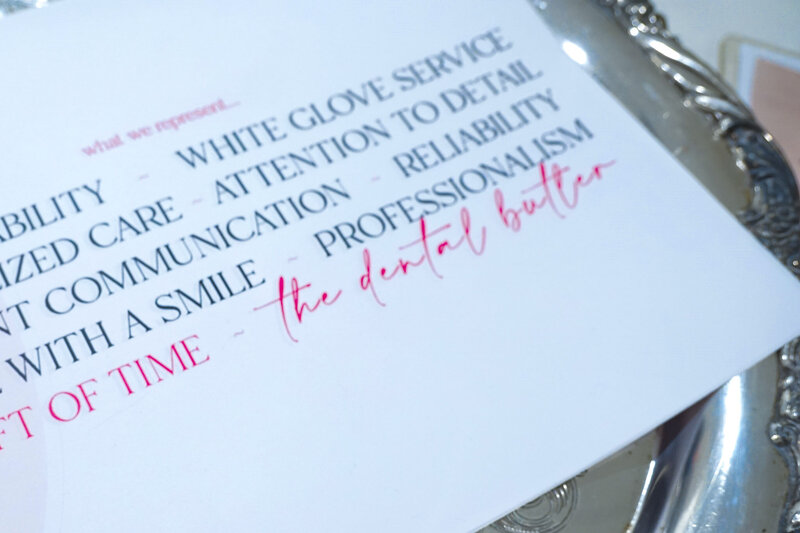 what we represent...
ABILITY ~ WHITE GLOVE SERVICE
IZED CARE ~ ATTENTION TO DETAIL
NT COMMUNICATION ~ RELIABILITY
WITH A SMILE ~ PROFESSIONALISM
FT OF TIME ~ the dental butler